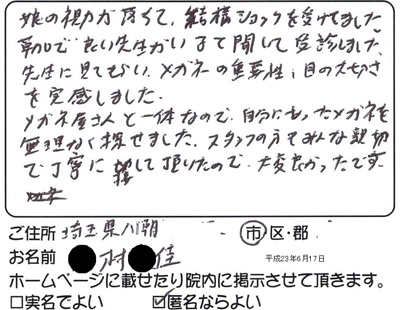 娘の視力が落ちて、結構ショックを受けてました
草加で良い先生がいるて聞して受診しました
先生に見てもらい、メガネの重要性、目の大切さ
を実感しました。
メガネ屋さんと一体なので、自分にあったメガネを
無理なく探せました。スタッフの方てみんな親切
で丁寧に接して頂けたので、大変良かったです。
ご住所 埼玉県八潮 市 区・郡
お名前 村 佳 平成23年6月17日
ホームページに載せたり院内に掲示させて頂きます。
□実名でよい ☑匿名ならよい